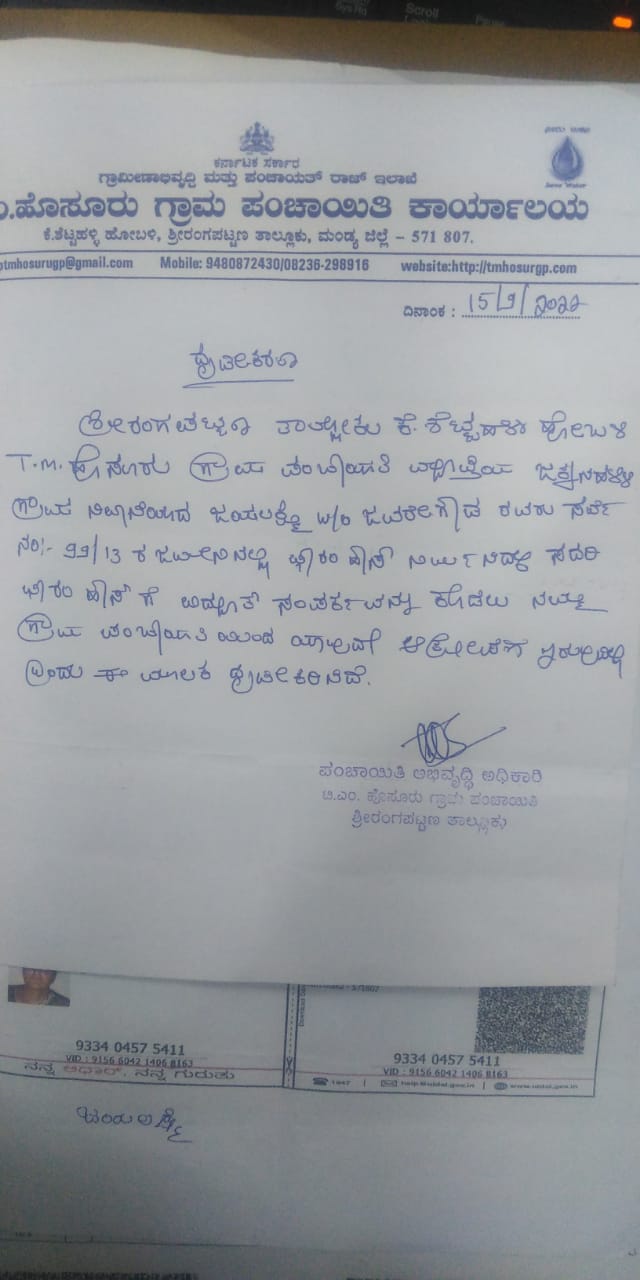 ಕರ್ನಾಟಕ ಸರ್ಕಾರ
ಗ್ರಾಮೀಣಾಭಿವೃದ್ಧಿ ಮತ್ತು ಪಂಚಾಯತ್ ರಾಜ್ ಇಲಾಖೆ
Save Water
ಂ.ಹೊಸೂರು ಗ್ರಾಮ ಪಂಚಾಯಿತಿ ಕಾರ್ಯಾಲಯ
ಕೆ.ಶೆಟ್ಟಹಳ್ಳಿ ಹೋಬಳಿ, ಶ್ರೀರಂಗಪಟ್ಟಣ ತಾಲ್ಲೂಕು, ಮಂಡ್ಯ ಜಿಲ್ಲೆ - 571 807.
tmhosurugp@gmail.com Mobile: 9480872430/08236-298916 website:http://tmhosurgp.com
ದಿನಾಂಕ : 15/9/2022
ದೃಢೀಕರಣ
ಶ್ರೀರಂಗಪಟ್ಟಣ ತಾಲ್ಲೋಕು ಕೆ. ಶೆಟ್ಟಹಳ್ಳಿ ಹೋಬಳಿ
T.M. ಹೊಸೂರು ಗ್ರಾಮ ಪಂಚಾಯಿತಿ ವ್ಯಾಪ್ತಿಯ
ಗ್ರಾಮ ನಿವಾಸಿಯಾದ ಜಯಲಕ್ಷ್ಮೀ w/o ಜವರೇಗೌಡ ರವರು ಸರ್ವೆ
ನಂ:- 99/13 ರ ಜಮೀನಿನಲ್ಲಿ ಫಾರಂ ಹೌಸ್ ನಿರ್ಮಿಸಿದ್ದು ಸದರಿ
ಫಾರಂ ಹೌಸ್ ಗೆ ವಿದ್ಯುತ್ ಸಂಪರ್ಕವನ್ನು ಕೊಡಲು ನಮ್ಮ
ಗ್ರಾಮ ಪಂಚಾಯಿತಿ ಯಿಂದ ಯಾವುದೇ ಆಕ್ಷೇಪಣೆ ಇರುವುದಿಲ್ಲ
ಎಂದು ಈ ಮೂಲಕ ದೃಢೀಕರಿಸಿದೆ.
ಪಂಚಾಯಿತಿ ಅಭಿವೃದ್ಧಿ ಅಧಿಕಾರಿ
ಟಿ.ಎಂ. ಹೊಸೂರು ಗ್ರಾಮ ಪಂಚಾಯಿತಿ
ಶ್ರೀರಂಗಪಟ್ಟಣ ತಾಲ್ಲೂಕು
9334 0457 5411
VID : 9156 6042 1406 8163
ನನ್ನ ಆಧಾರ್, ನನ್ನ ಗುರುತು
9334 0457 5411
VID : 9156 6042 1406 8163
1947 | help@uidai.gov.in | www.uidai.gov.in
ಜಯಲಕ್ಷ್ಮಿ